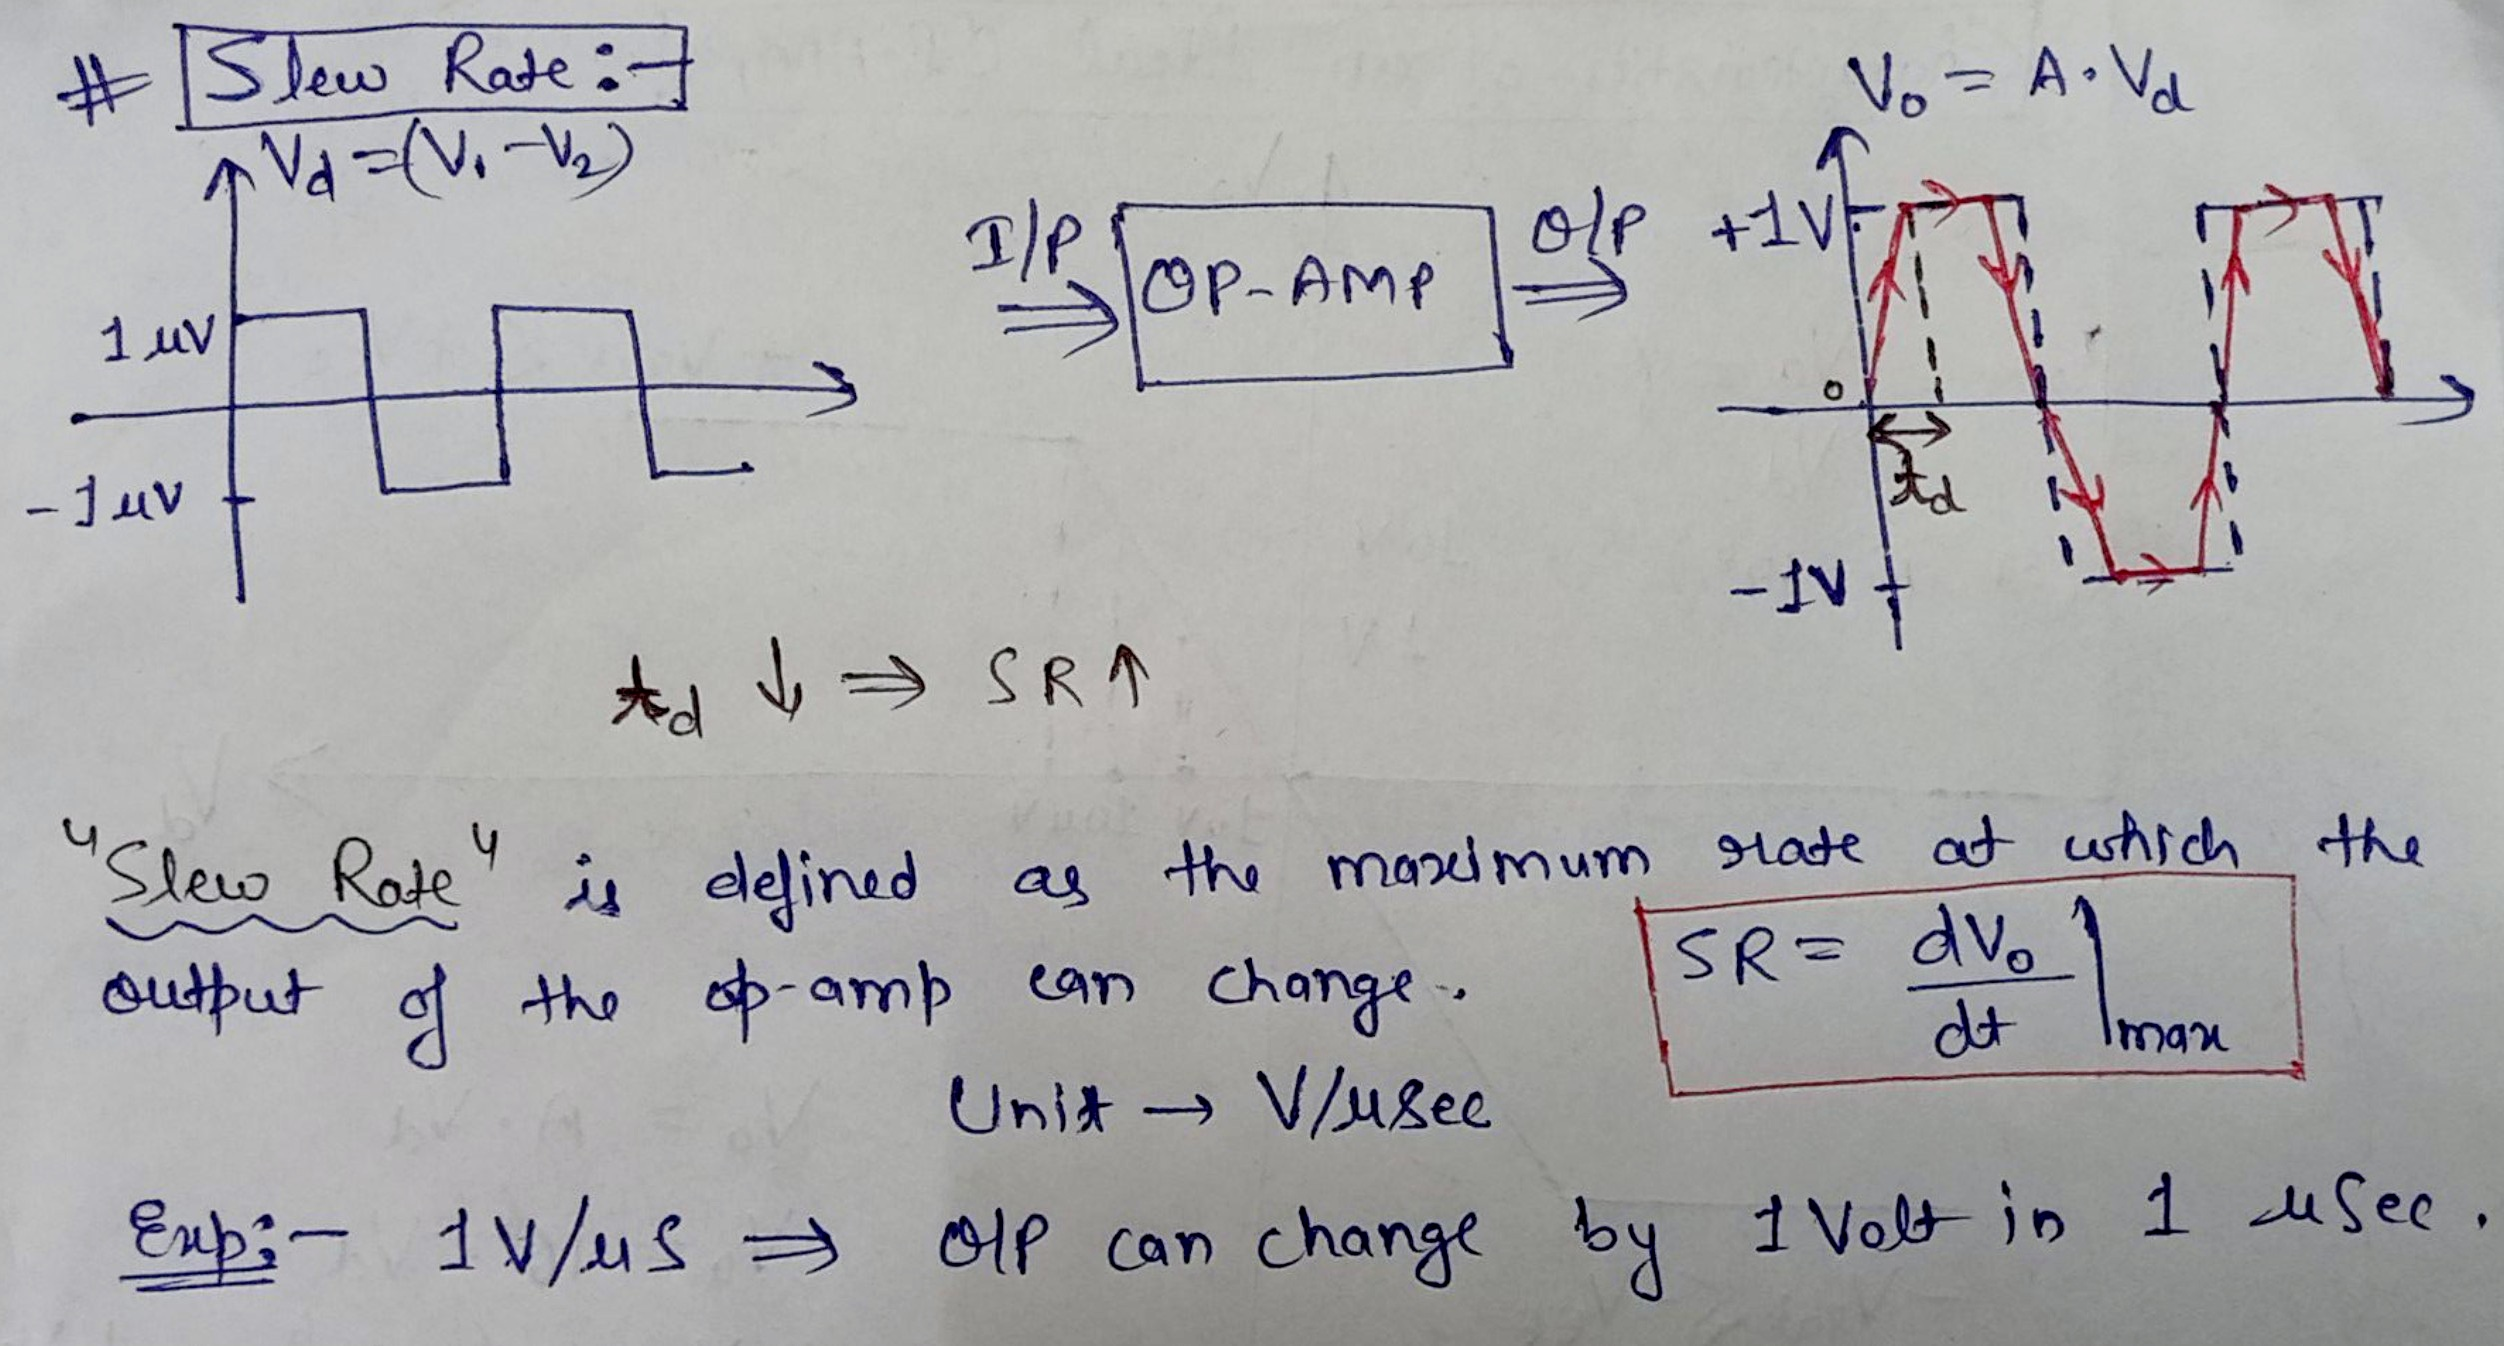 # Slew Rate :-
Vd = (V₁ - V₂)
1 μV
- 1 μV
I/P
OP-AMP
O/P
V₀ = A . Vd
+1V
0
td
-1V
td ↓ ⇒ SR ↑
"Slew Rate" is defined as the maximum rate at which the
output of the op-amp can change.
SR = dV₀/dt |max
Unit → V/μsec
Exp:- 1 V/μs ⇒ O/P can change by 1 Volt in 1 μsec.